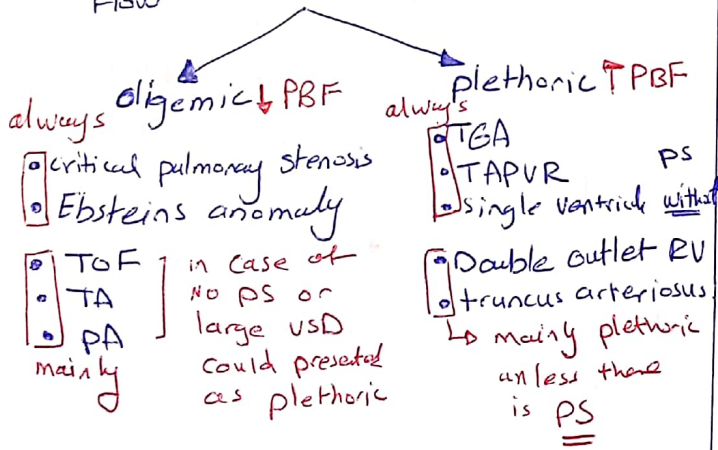 Flow
oligemic ↓ PBF
always
• critical pulmonary stenosis
• Ebsteins anomaly
• TOF
• TA
• PA
mainly
in case of
NO PS or
large VSD
could presented
as plethoric
plethoric ↑ PBF
always
• TGA
• TAPVR
PS
• single ventricle without
• Double outlet RV
• truncus arteriosus
↳ mainly plethoric
unless there
is PS